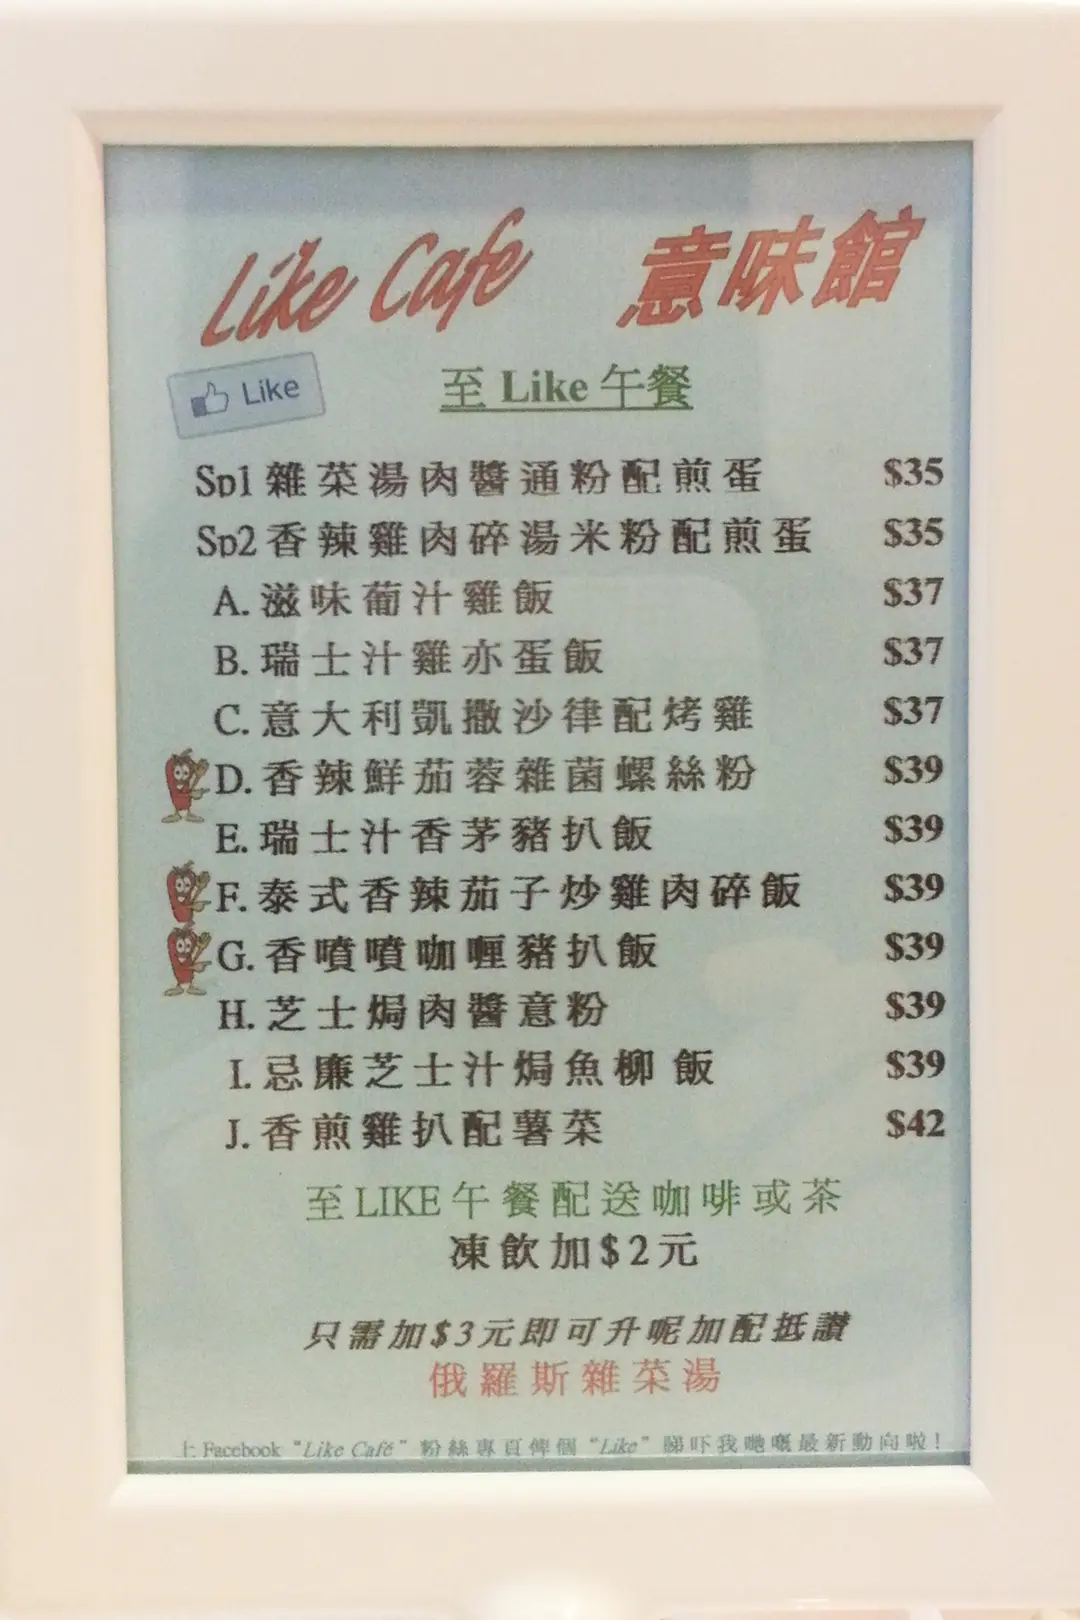 Like Cafe 意味館
Like
至 Like 午餐
Sp1 雜菜湯肉醬通粉配煎蛋 $35
Sp2 香辣雞肉碎湯米粉配煎蛋 $35
A. 滋味葡汁雞飯 $37
B. 瑞士汁雞亦蛋飯 $37
C. 意大利凱撒沙律配烤雞 $37
D. 香辣鮮茄蓉雜菌螺絲粉 $39
E. 瑞士汁香茅豬扒飯 $39
F. 泰式香辣茄子炒雞肉碎飯 $39
G. 香噴噴咖喱豬扒飯 $39
H. 芝士焗肉醬意粉 $39
I. 忌廉芝士汁焗魚柳 飯 $39
J. 香煎雞扒配薯菜 $42
至 LIKE 午餐配送咖啡或茶
凍飲加$2元
只需加$3元即可升呢加配抵讚
俄羅斯雜菜湯
上 Facebook "Like Café" 粉絲專頁俾個 "Like" 睇吓我哋嘅最新動向啦！